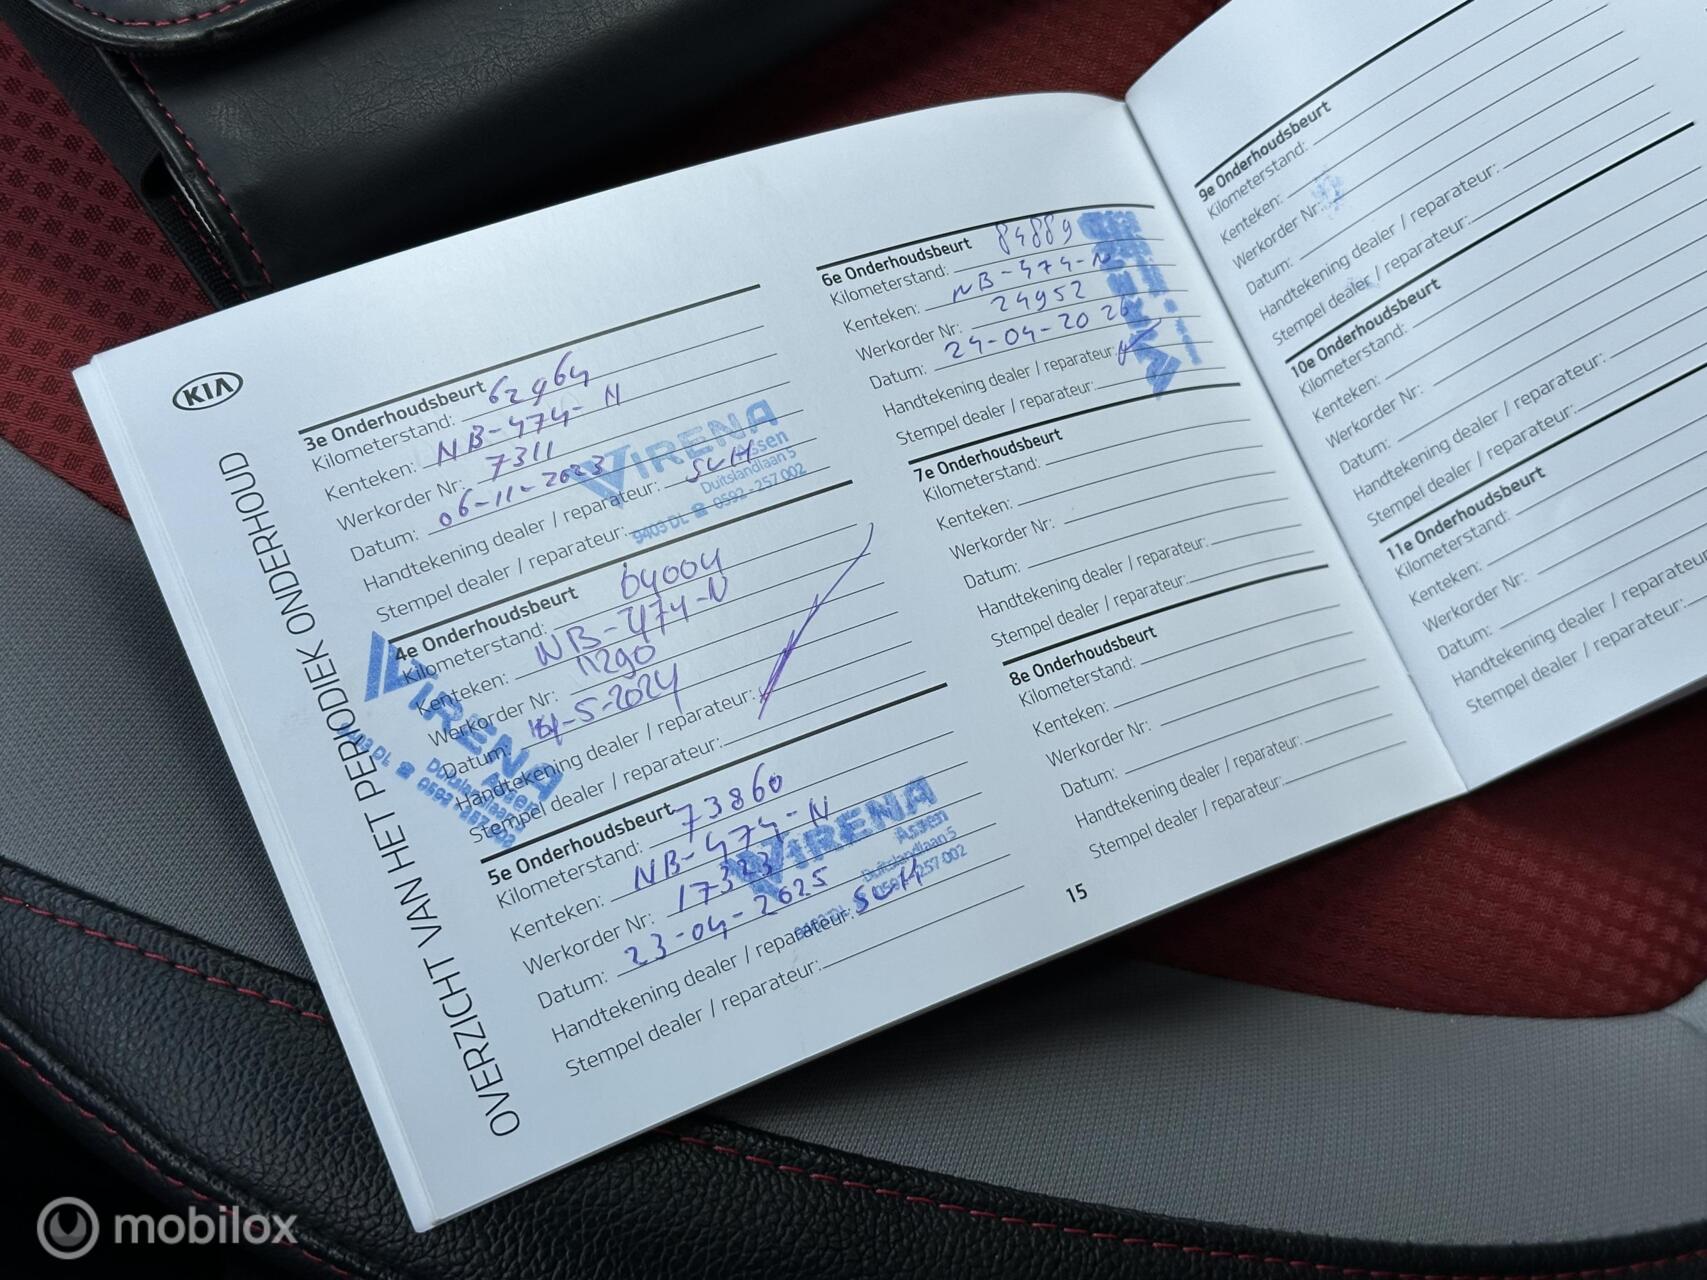 KIA
OVERZICHT VAN HET PERIODIEK ONDERHOUD
3e Onderhoudsbeurt
Kilometerstand: 62964
Kenteken: NB-474-N
Werkorder Nr: 7311
Datum: 06-11-2023
Handtekening dealer / reparateur: SCH
Stempel dealer / reparateur:
VIRENA
Assen
Duitslandlaan 5
9403 DL ☎ 0592-257 002
4e Onderhoudsbeurt
Kilometerstand: 64004
Kenteken: NB-474-N
Werkorder Nr: 11290
Datum: -5-2024
Handtekening dealer / reparateur:
Stempel dealer / reparateur:
VIRENA
Assen
Duitslandlaan 5
9403 DL ☎ 0592-257 002
5e Onderhoudsbeurt
Kilometerstand: 73860
Kenteken: NB-474-N
Werkorder Nr: 17323
Datum: 23-04-2025
Handtekening dealer / reparateur: SCH
Stempel dealer / reparateur:
VIRENA
Assen
Duitslandlaan 5
257 002
6e Onderhoudsbeurt
Kilometerstand: 84889
Kenteken: NB-474-N
Werkorder Nr: 24952
Datum: 24-04-2026
Handtekening dealer / reparateur:
Stempel dealer / reparateur:
7e Onderhoudsbeurt
Kilometerstand:
Kenteken:
Werkorder Nr:
Datum:
Handtekening dealer / reparateur:
Stempel dealer / reparateur:
8e Onderhoudsbeurt
Kilometerstand:
Kenteken:
Werkorder Nr:
Datum:
Handtekening dealer / reparateur:
Stempel dealer / reparateur:
15
9e Onderhoudsbeurt
Kilometerstand:
Kenteken:
Werkorder Nr:
Datum:
Handtekening dealer / reparateur:
Stempel dealer / reparateur:
10e Onderhoudsbeurt
Kilometerstand:
Kenteken:
Werkorder Nr:
Datum:
Handtekening dealer / reparateur:
Stempel dealer / reparateur:
11e Onderhoudsbeurt
Kilometerstand:
Kenteken:
Werkorder Nr:
Datum:
Handtekening dealer / reparateur:
Stempel dealer / reparateur:
mobilox